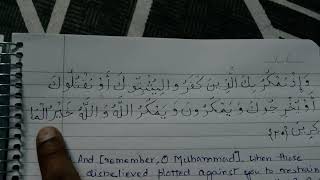 وَإِذْ يَمْكُرُ بِكَ الَّذِينَ كَفَرُوا لِيُثْبِتُوكَ أَوْ يَقْتُلُوكَ
أَوْ يُخْرِجُوكَ وَيَمْكُرُونَ وَيَمْكُرُ اللَّهُ وَاللَّهُ خَيْرُ الْمَا
كِرِينَ (٣٠)
And [remember, O Muhammad], when those
disbelieved plotted against you to restrain